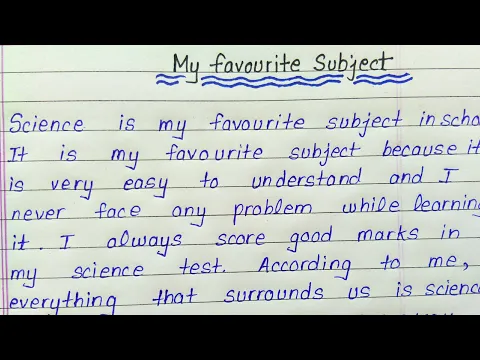 My favourite Subject
Science is my favourite subject in scho
It is my favourite subject because it
is very easy to understand and I
never face any problem while learning
it. I always score good marks in
my science test. According to me,
everything that surrounds us is science